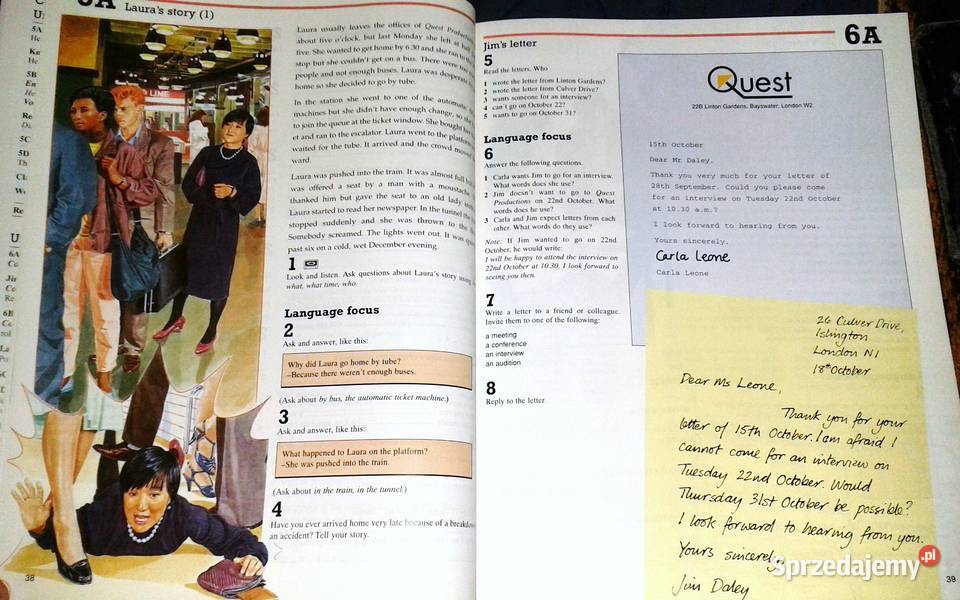 6A
Laura's story (1)
Laura usually leaves the offices of Quest
about five o'clock, but last Monday she left at
five. She wanted to get home by 6.30 and she ran to
stop but she couldn't get on a bus. There were too
people and not enough buses. Laura was desperate
home so she decided to go by tube.
In the station she went to one of the automatic
machines but she didn't have enough change, so
to join the queue at the ticket window. She bought
et and ran to the escalator. Laura went to the platform
waited for the tube. It arrived and the crowd moved
ward.
Laura was pushed into the train. It was almost full
was offered a seat by a man with a moustache
thanked him but gave the seat to an old lady
Laura started to read her newspaper. In the tunnel the
stopped suddenly and she was thrown to the
Somebody screamed. The lights went out. It was
past six on a cold, wet December evening.
1
Look and listen. Ask questions about Laura's story using
what, what time, who.
Language focus
2
Ask and answer, like this:
Why did Laura go home by tube?
–Because there weren't enough buses.
(Ask about by bus, the automatic ticket machine.)
3
Ask and answer, like this:
What happened to Laura on the platform?
–She was pushed into the train.
(Ask about in the train, in the tunnel.)
4
Have you ever arrived home very late because of a breakdown
an accident? Tell your story.
38
Jim's letter
6A
5
Read the letters. Who
1 wrote the letter from Linton Gardens?
2 wrote the letter from Culver Drive?
3 wants someone for an interview?
4 can't go on October 22?
5 wants to go on October 31?
Language focus
6
Answer the following questions.
1 Carla wants Jim to go for an interview.
What words does she use?
2 Jim doesn't want to go to Quest
Productions on 22nd October. What
words does he use?
3 Carla and Jim expect letters from each
other. What words do they use?
Note: If Jim wanted to go on 22nd
October, he would write:
I will be happy to attend the interview on
22nd October at 10.30. I look forward to
seeing you then.
7
Write a letter to a friend or colleague.
Invite them to one of the following:
a meeting
a conference
an interview
an audition
8
Reply to the letter.
Quest
22B Linton Gardens, Bayswater, London W2
15th October
Dear Mr Daley,
Thank you very much for your letter of
28th September. Could you please come
for an interview on Tuesday 22nd October
at 10.30 a.m.?
I look forward to hearing from you.
Yours sincerely,
Carla Leone
Carla Leone
26 Culver Drive,
Islington
London N1
18th October
Dear Ms Leone,
Thank you for your
letter of 15th October. I am afraid I
cannot come for an interview on
Tuesday 22nd October. Would
Thursday 31st October be possible?
I look forward to hearing from you.
Yours sincerely,
Jim Daley
39
Sprzedajemy.pl